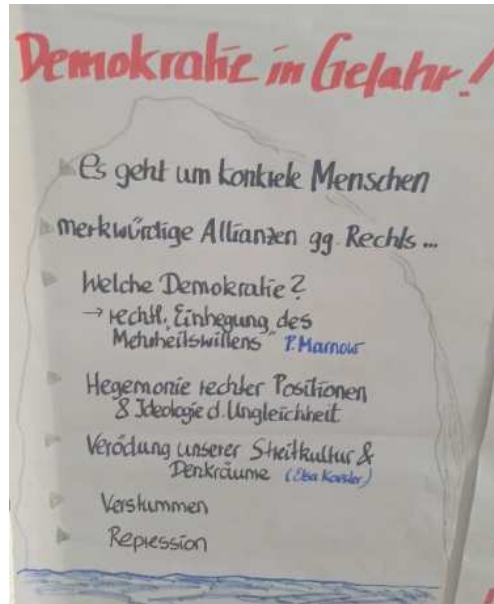 Demokratie in Gefahr!
Es geht um konkrete Menschen
merkwürdige Allianzen gg. Rechts ...
Welche Demokratie?
→ rechtl. „Einhegung des
Mehrheitswillens" P. Marnour
Hegemonie rechter Positionen
& Ideologie d. Ungleichheit
Verödung unserer Streitkultur &
Denkräume (Elsa Koester)
Verstummen
Repression